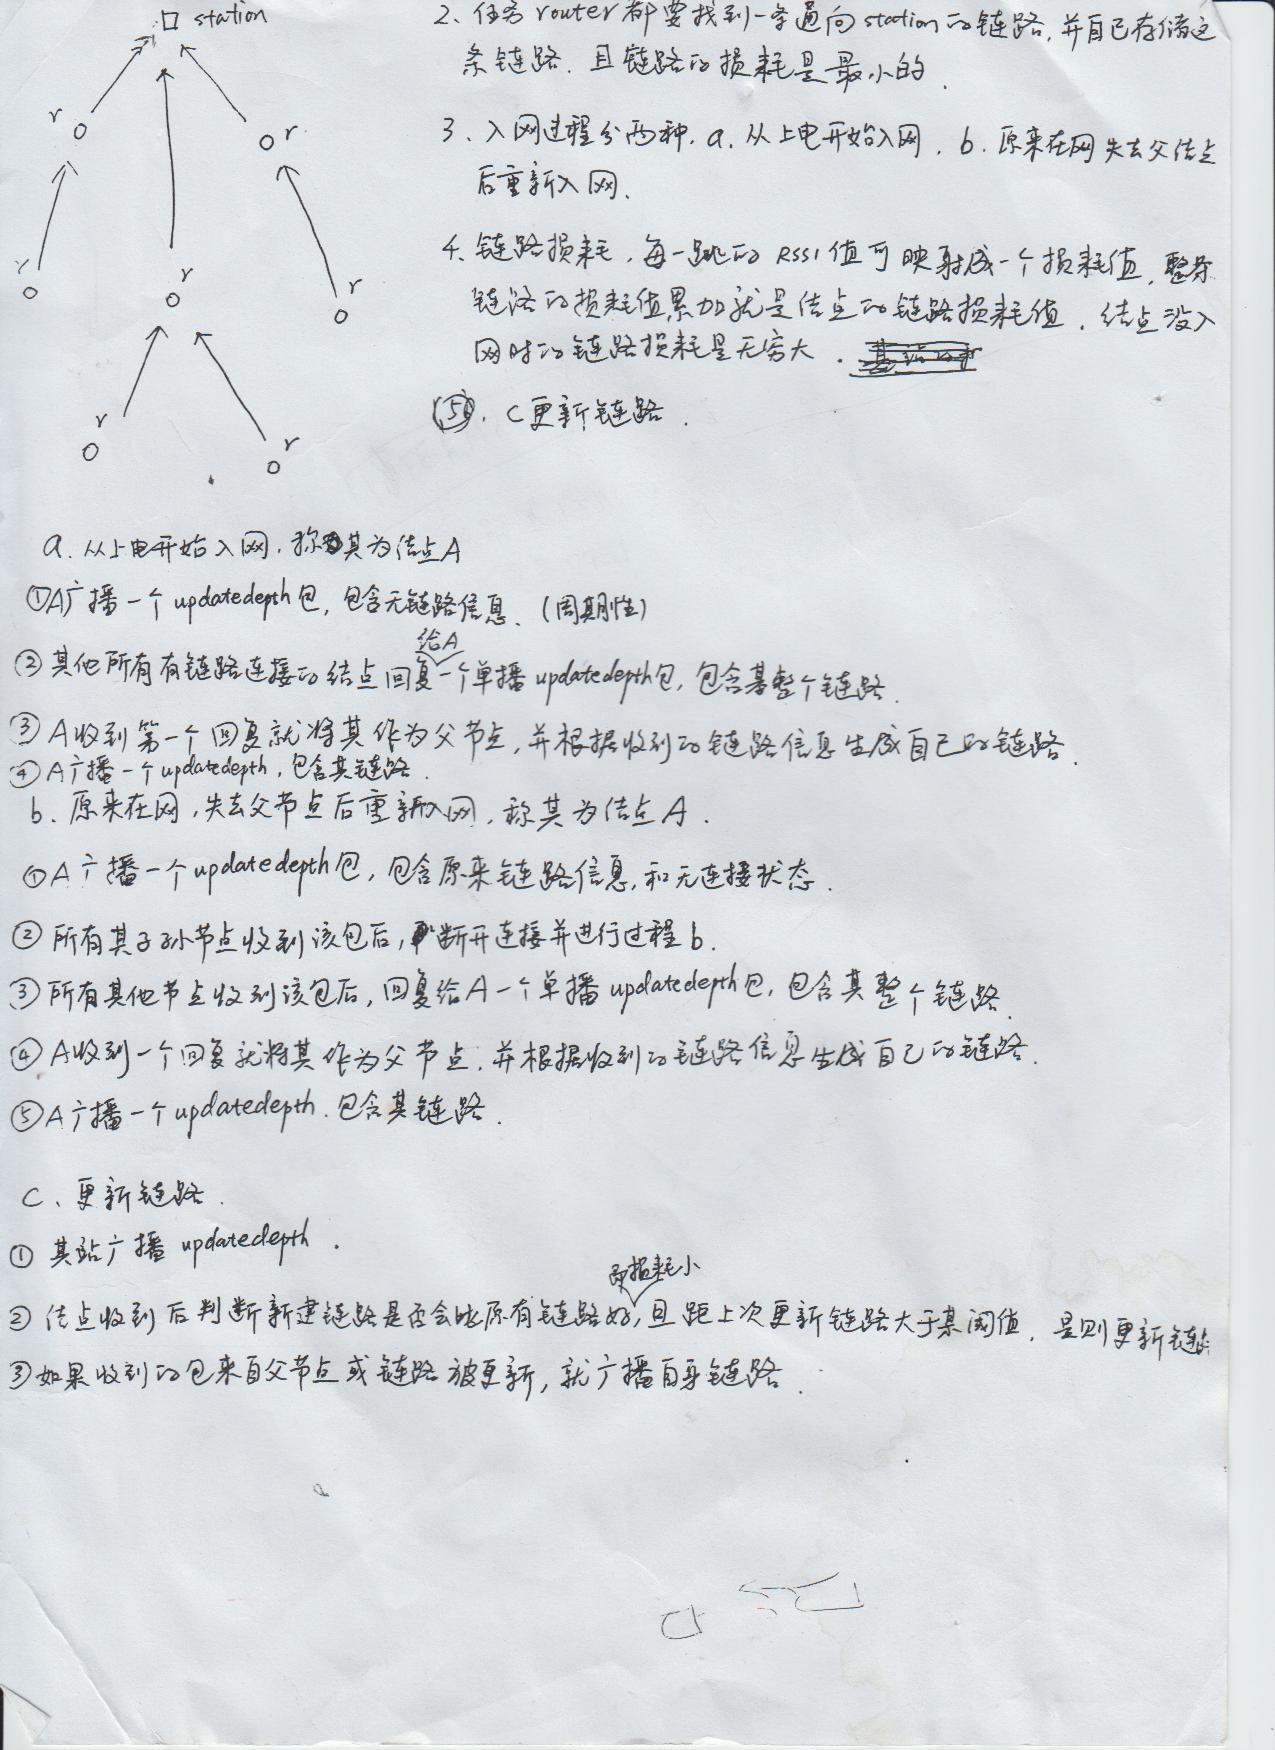 station
r
r
r
r
r
r
r
2、任务router都要找到一条通向station的链路,并自己存储这
条链路、且链路的损耗是最小的.
3、入网过程分两种. a. 从上电开始入网. b. 原来在网失去父结点
后重新入网.
4、链路损耗. 每一跳的RSSI值可映射成一个损耗值. 整条
链路的损耗值累加就是结点的链路损耗值. 结点没入
网时的链路损耗是无穷大.
⑤. C更新链路.
a. 从上电开始入网. 称其为结点A
①A广播一个updatedepth包, 包含无链路信息. (周期性)
②其他所有有链路连接的结点回复给A一个单播updatedepth包, 包含其整个链路.
③A收到第一个回复就将其作为父节点, 并根据收到的链路信息生成自己的链路.
④A广播一个updatedepth, 包含其链路.
b. 原来在网, 失去父节点后重新入网, 称其为结点A.
①A广播一个updatedepth包, 包含原来链路信息, 和无连接状态.
②所有其子孙节点收到该包后, 断开连接并进行过程b.
③所有其他节点收到该包后, 回复给A一个单播updatedepth包, 包含其整个链路.
④A收到一个回复就将其作为父节点. 并根据收到的链路信息生成自己的链路.
⑤A广播一个updatedepth. 包含其链路.
C、更新链路.
① 其站广播 updatedepth.
② 结点收到后判断新建链路是否会比原有链路好即损耗小, 且距上次更新链路大于某阈值. 是则更新链路
③如果收到的包来自父节点或链路被更新, 就广播自身链路.